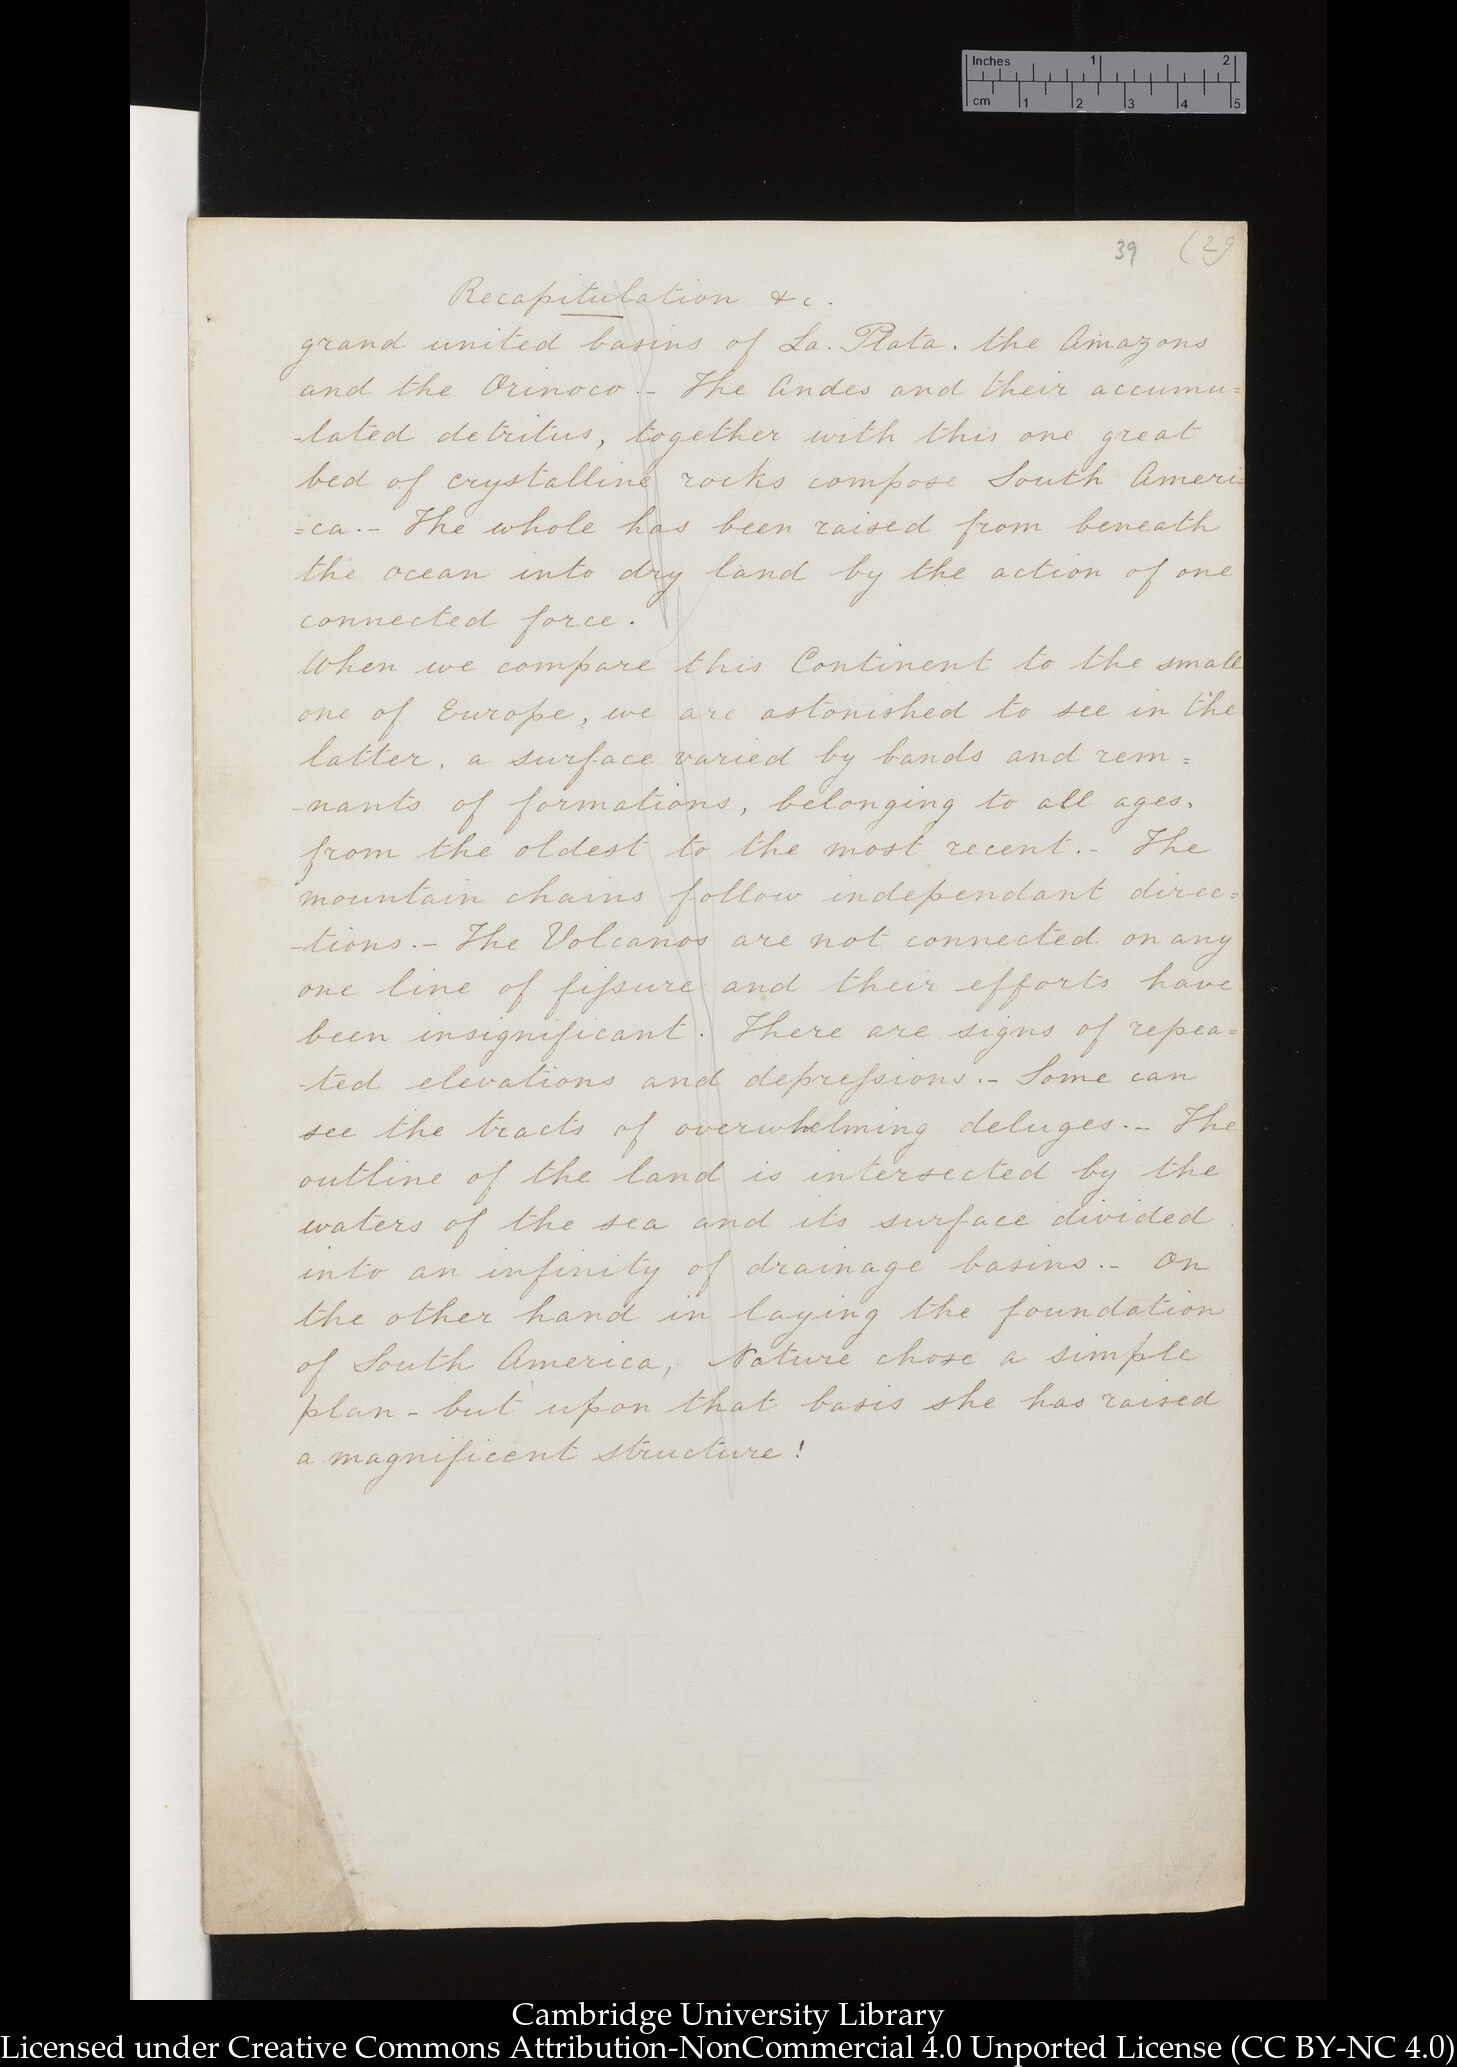 Inches 1 2
cm 1 2 3 4 5
39 (29
Recapitulation &c.
grand united basins of La. Plata. the Amazons
and the Orinoco.- The Andes and their accumu=
-lated detritus, together with this one great
bed of crystalline rocks compose South Ameri=
=ca.- The whole has been raised from beneath
the ocean into dry land by the action of one
connected force.
When we compare this Continent to the small
one of Europe, we are astonished to see in the
latter, a surface varied by bands and rem=
-nants of formations, belonging to all ages,
from the oldest to the most recent.- The
mountain chains follow independant direc=
-tions.- The Volcanos are not connected on any
one line of fiſsure and their efforts have
been insignificant. There are signs of repea=
-ted elevations and depreſsions.- Some can
see the tracts of overwhelming deluges.- The
outline of the land is intersected by the
waters of the sea and its surface divided
into an infinity of drainage basins.- On
the other hand in laying the foundation
of South America, Nature chose a simple
plan - but upon that basis she has raised
a magnificent structure!
Cambridge University Library
Licensed under Creative Commons Attribution-NonCommercial 4.0 Unported License (CC BY-NC 4.0)